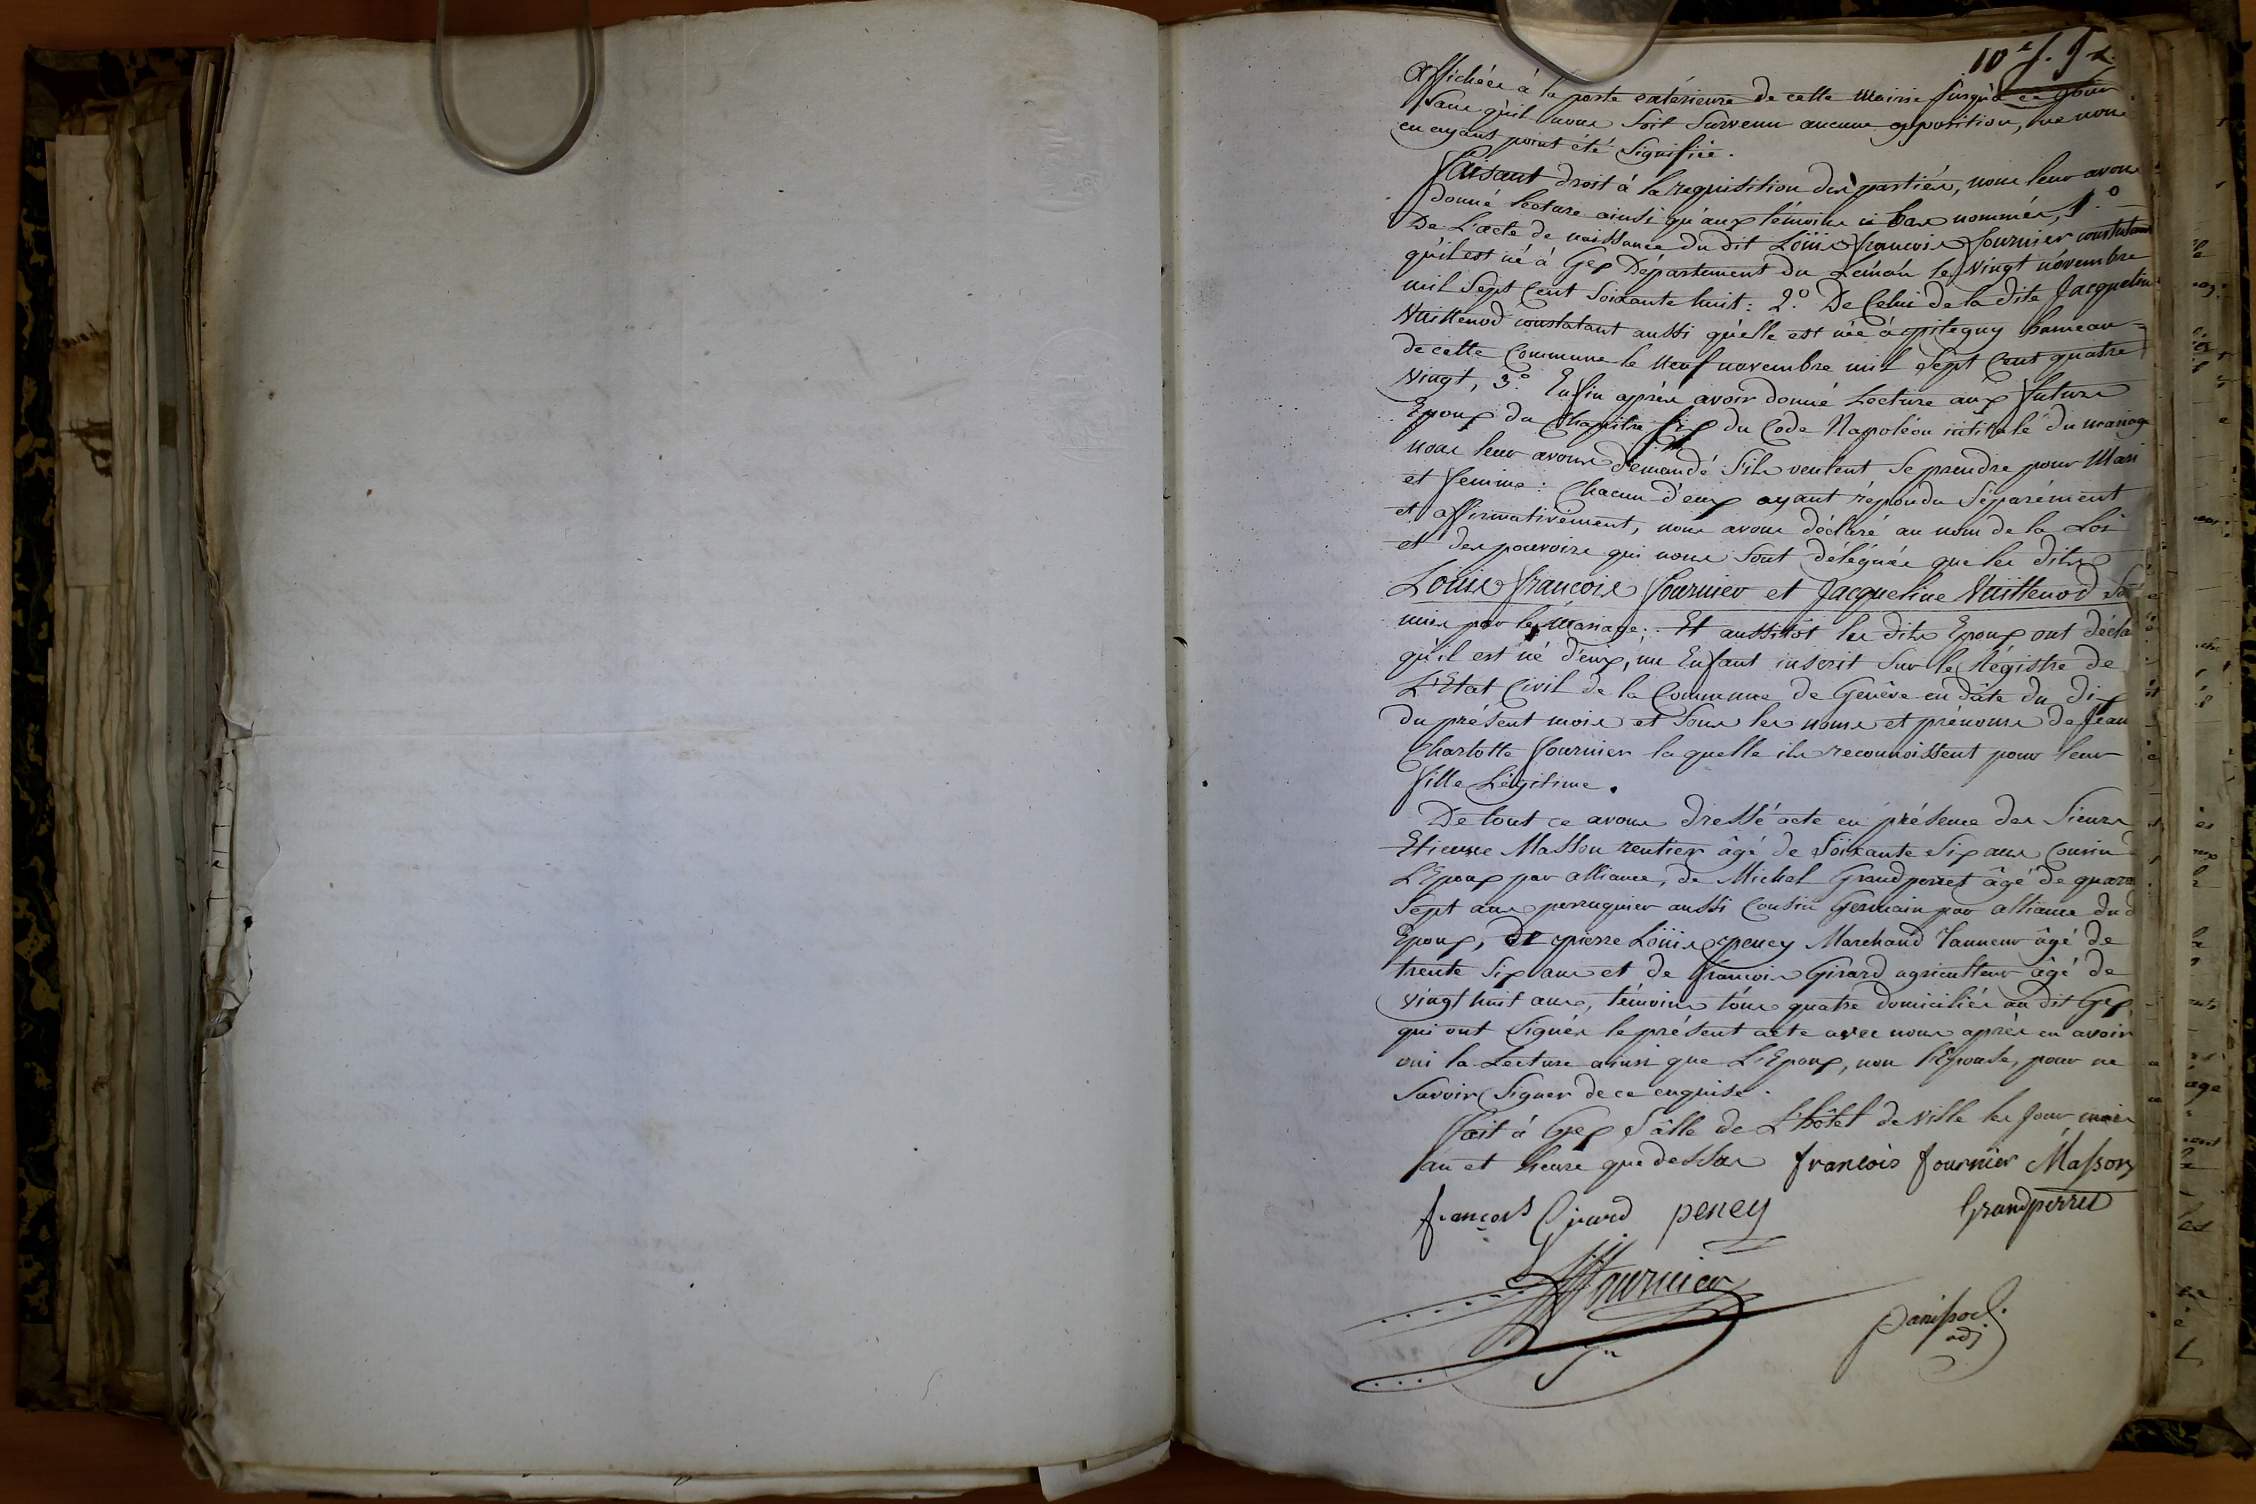 10.e f.
affichées à la porte extérieure de cette Mairie jusqu'à ce jour
sans qu'il nous soit survenu aucune opposition, ne nous
en ayant point été signifiée.
Faisant droit à la réquisition des parties, nous leur avons
donné lecture ainsi qu'aux témoins ci bas nommés, 1.°
De L'acte de naissance du dit Loüis françois fournier constatant
qu'il est né à Gex Département du Léman le vingt novembre
mil Sept Cent Soixante huit: 2.° De Celui de la dite Jacqueline
Vuittenod constatant aussi qu'elle est née à pitegny hameau
de cette Commune le neuf novembre mil Sept Cent quatre
vingt, 3.° Enfin après avoir donné Lecture aux futurs
Epoux du Chapitre six du Code Napoléon intitulé du mariage
nous leur avons demandé s'ils veulent se prendre pour Mari
et femme: Chacun d'eux ayant répondu Séparément
et affirmativement, nous avons déclaré au nom de la Loi
et des pouvoirs qui nous sont délégués que les dits
Louis françois fournier et Jacqueline Vuittenod So
unis par le Mariage; Et aussitôt les dits Epoux ont décla
qu'il est né d'eux, un Enfant inscrit sur le Régistre de
L'Etat Civil de la Commune de Genêve en dâte du dix
du présent mois et sous les noms et prénoms de Jean
Charlotte fournier la quelle ils reconnoissent pour leur
fille Légitime.
De tout ce avons dressé acte en présence des Sieurs
Etienne Masson rentier âgé de Soixante Six ans Cousin d
L'Epoux par alliance, de Michel Grandperret âgé de quara
Sept ans perruquier aussi Cousin Germain par alliance du d
Epoux, de pierre Loüis peney Marchand Tanneur âgé de
trente Six ans et de françois Girard agriculteur âgé de
vingt huit ans, témoins tous quatre domiciliés au dit Gex,
qui ont Signés le présent acte avec nous après en avoir
oui la Lecture ainsi que L'Epoux, non l'Epouse, pour ne
Savoir Signer de ce enquise.
Fait à Gex Sâlle de L'hôtel de ville les Jour mois
an et heure que dessus françois fournier Masson
françois Girard peney Grandperret
fournier
Panissod
adj.